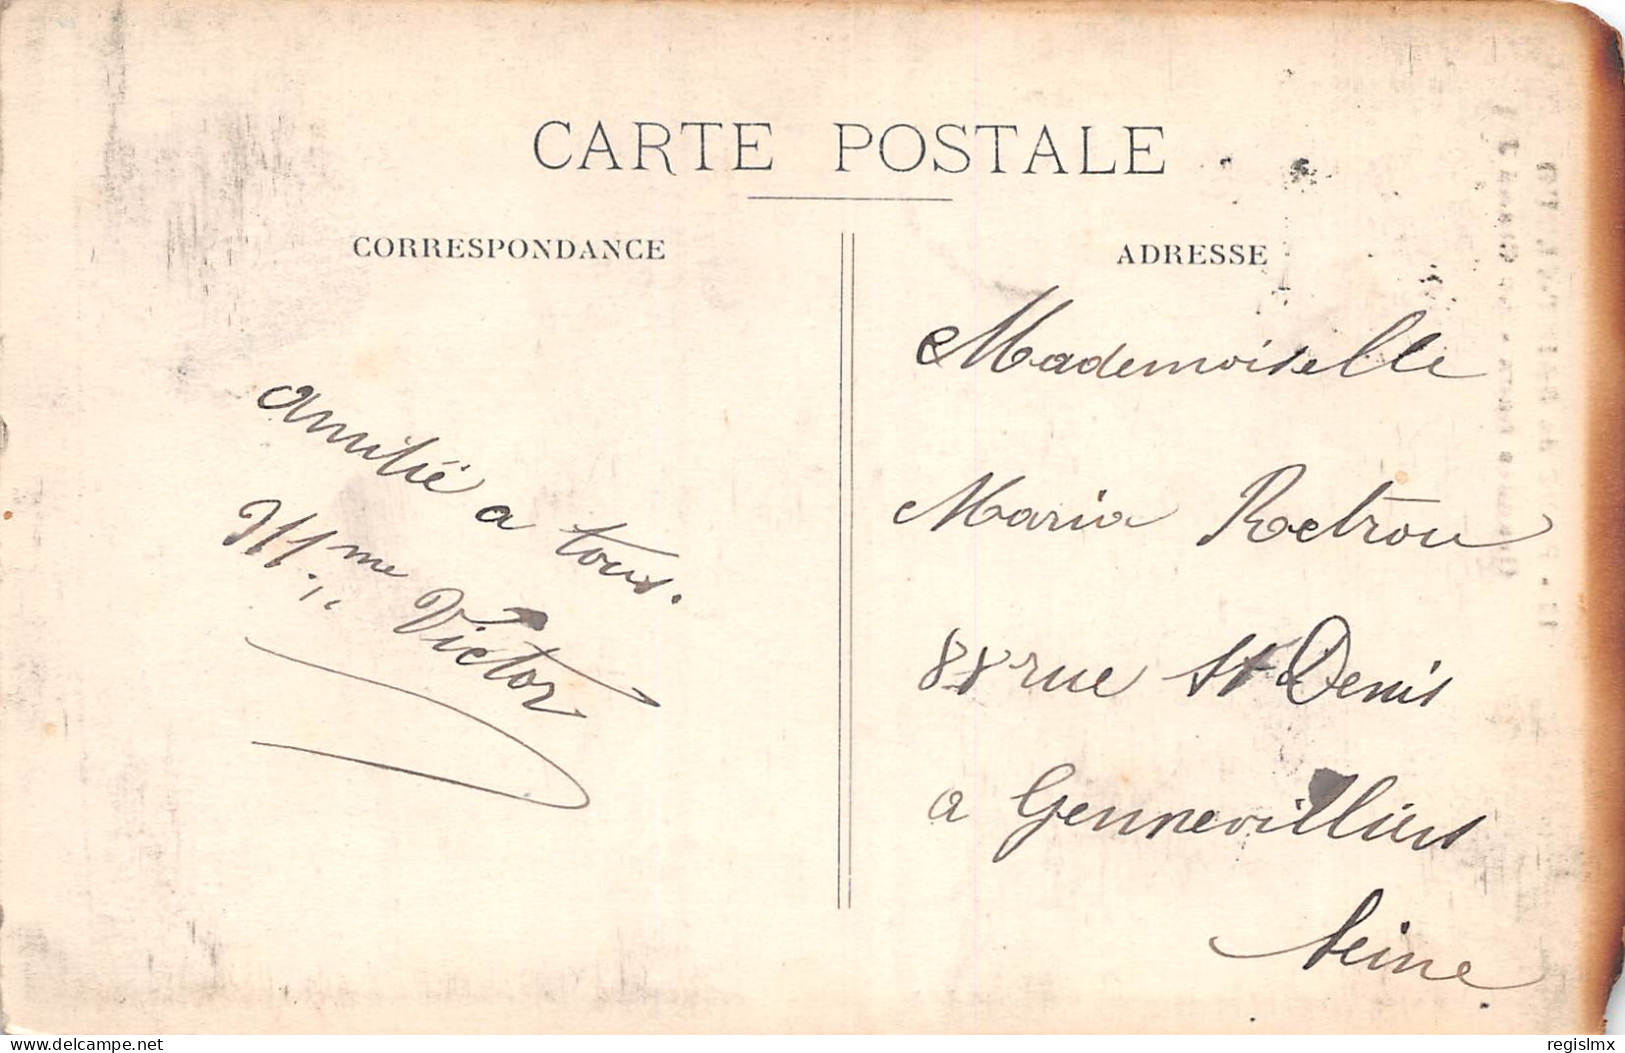 CARTE POSTALE
CORRESPONDANCE
ADRESSE
amitié a tous.
Mme Victor
Mademoiselle
Maria Retrou
88 rue St Denis
a Gennevilliers
Seine
www.delcampe.net
regislmx